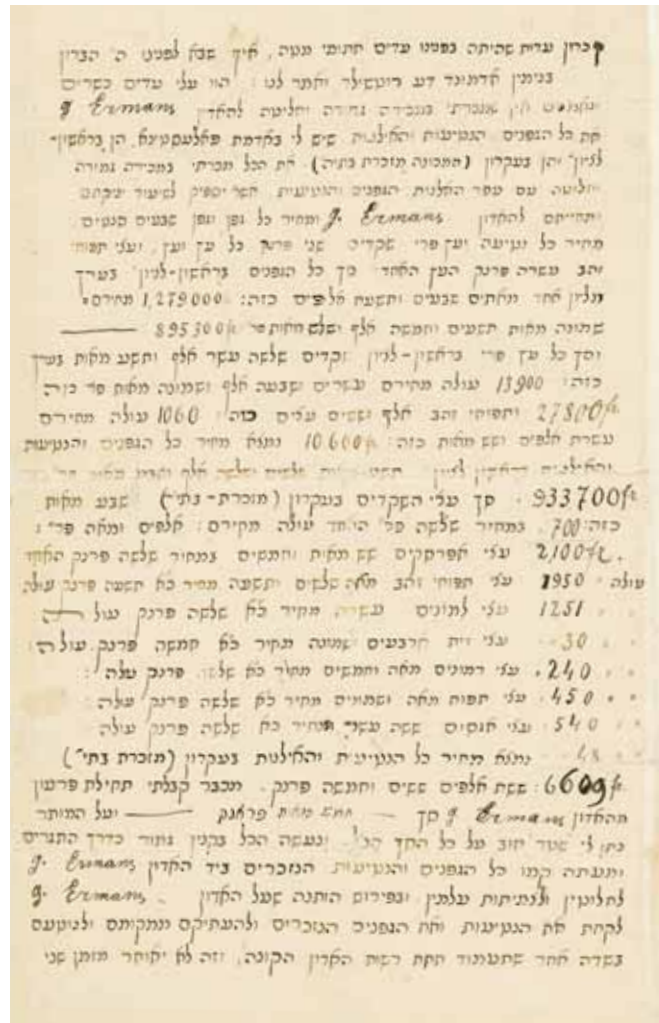 זכרון עדות שהיתה בפנינו עדים חתומי מטה, איך שבא לפנינו ה' הברון
בנימין אדמונד דע רוטשילד ואמר לנו : הוו עלי עדים כשרים
ונאמנים איך שמכרתי במכירה גמורה וחליטה להאדון J. Ermans
את כל הגפנים הנטיעות והאילנות שיש לי באדמת פאלעסטינא, הן בראשון-
לציון והן בעקרון (המכונה מזכרת בתיה) את הכל מכרתי במכירה גמורה
וחליטה עם עפר האילנות הגפנים והנטיעות, אשר יספיק לשיעור יניקתם
וחייתם להאדון J. Ermans ומחיר כל גפן וגפן שבעים סנטים,
מחיר כל נטיעה ועץ פרי שקדים שני פרנק כל עץ ועץ, ועצי תפוחי
זהב עשרה פרנק העץ האחד. סך כל הגפנים בראשון-לציון בערך
מליון אחד מאתים שבעים ותשעת אלפים כזה: 1,279000 מחירם
שמונה מאות תשעים וחמשה אלף ושלש מאות פר' 895300 fr
וסך כל עץ פרי בראשון-לציון שקדים שלשה עשר אלף ותשע מאות בערך
כזה: 13900 עולה מחירם עשרים ושבעה אלף ושמונה מאות פר' כזה
27800 fr. ותפוחי זהב אלף וששים עצים כזה: 1060 עולה מחירם
עשרת אלפים ושש מאות כזה: 10600 fr נמצא מחיר כל הגפנים והנטיעות
והאילנות בראשון לציון תשע מאות שלשים ושלשה אלף ושבע מאות פר' כזה
933700 fr סך עצי השקדים בעקרון (מזכרת-בתי') שבע מאות
כזה: 700, במחיר שלשה פר' האחד עולה מחירם: אלפים ומאה פר' :
2,100 fr. עצי אפרסקים שש מאות וחמשים במחיר שלשה פרנק האחד
עולה 1950 עצי תפוחי זהב מאה שלשים ותשעה מחיר כא תשעה פרנק עולה
1251 עצי לימונים עשרה מחיר כא שלשה פרנק עולה
30 עצי זית ארבעים ושמונה מחיר כא חמשה פרנק עולה
240 עצי רמונים מאה וחמשים מחיר כא שלשה פרנק עולה
450 עצי תפוח מאה ושמונים מחיר כא שלשה פרנק עולה
540 עצי אגסים ששה עשר מחיר כא שלשה פרנק עולה
48 נמצא מחיר כל הנטיעות והאילנות בעקרון (מזכרת בתי')
6609 fr: ששת אלפים ששים וחמשה פרנק. מכבר קבלתי תחילת פרעון
מהאדון J. Ermans סך חמש מאות פראנק ועל המותר
נתן לי שטר חוב על כל הסך הנ"ל. ונעשה הכל בקנין גמור כדרך התגרים
ומעתה קמו כל הגפנים והנטיעות הנזכרים ביד האדון J. Ermans
לחלוטין ולצמיתות עלמין ובפירוש הותנה שעל האדון J. Ermans
לקחת את הנטיעות ואת הגפנים הנזכרים ולהעתיקם ממקומם ולנוטעם
בשדה אחר שתעמוד תחת רשות האדון הקונה, וזה לא יאוחר מזמן שני